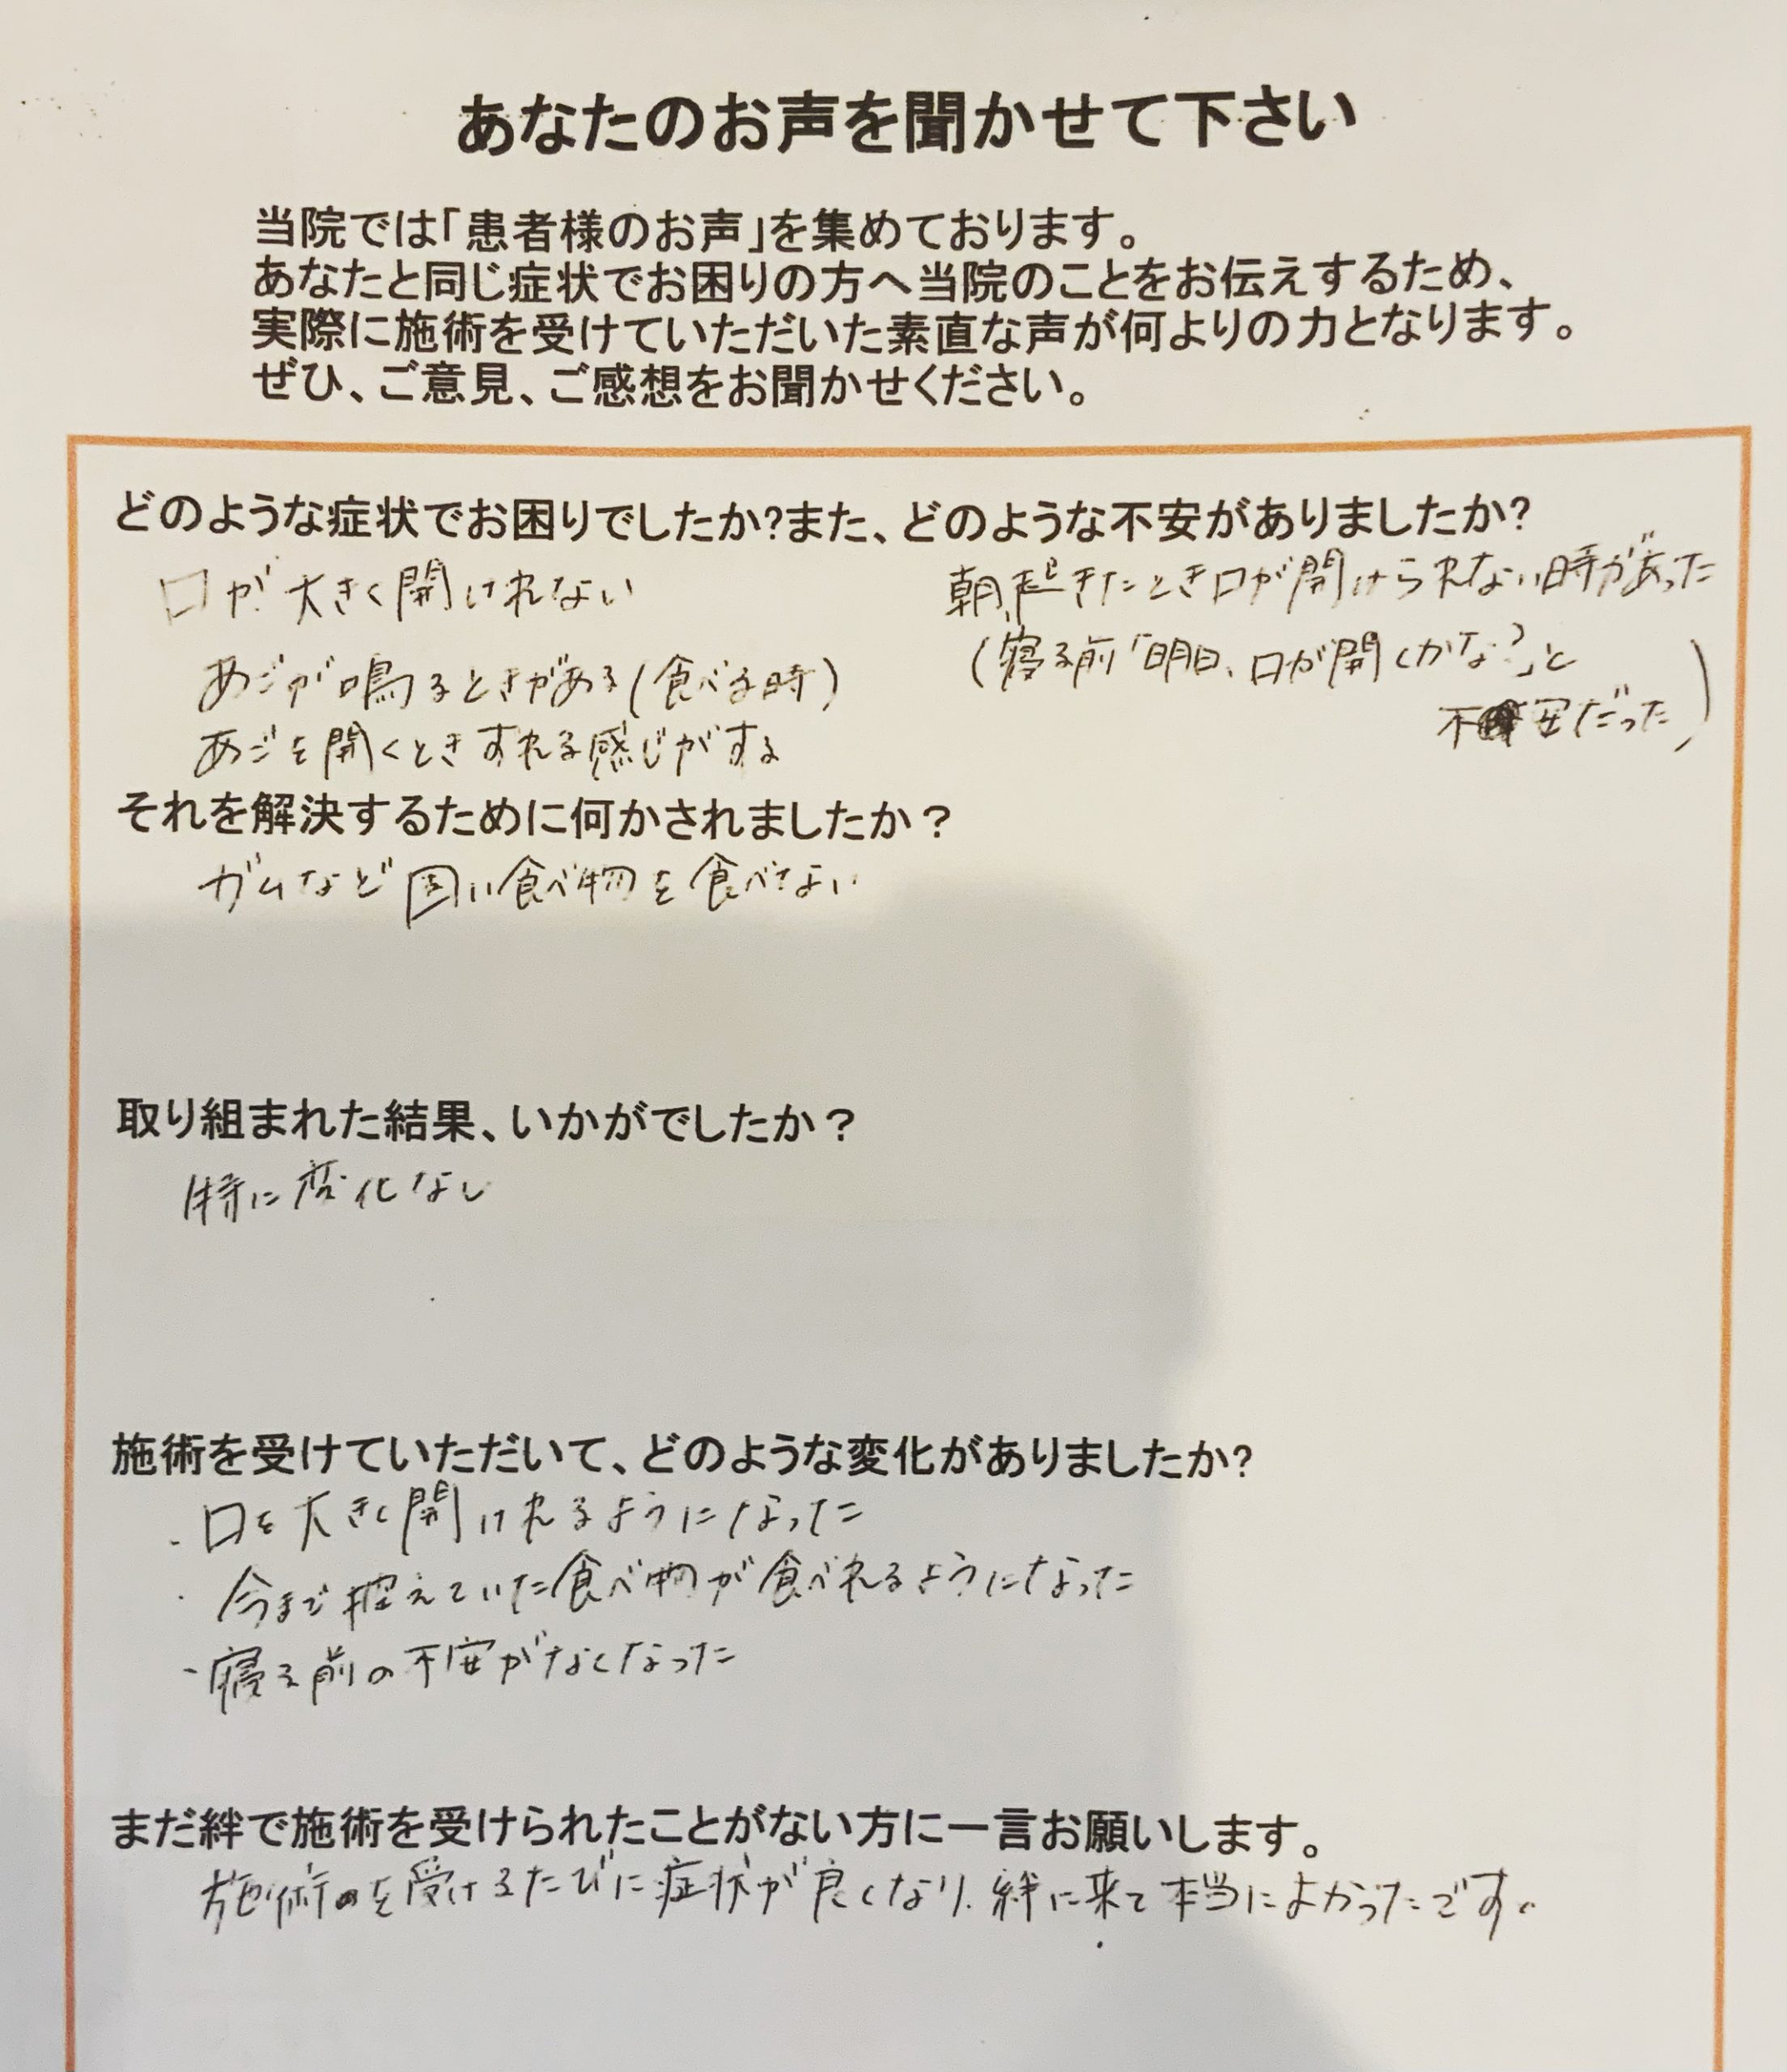 あなたのお声を聞かせて下さい
当院では「患者様のお声」を集めております。
あなたと同じ症状でお困りの方へ当院のことをお伝えするため、
実際に施術を受けていただいた素直な声が何よりの力となります。
ぜひ、ご意見、ご感想をお聞かせください。
どのような症状でお困りでしたか?また、どのような不安がありましたか?
口が大きく開けれない
あごが鳴るときがある(食べる時)
あごを開くときずれる感じがする
朝、起きたとき口が開けられない時があった
(寝る前「明日、口が開くかな?」と
不安だった)
それを解決するために何かされましたか？
ガムなど固い食べ物を食べない
取り組まれた結果、いかがでしたか？
特に変化なし
施術を受けていただいて、どのような変化がありましたか?
・口を大きく開けれるようになった
・今まで控えていた食べ物が食べれるようになった
・寝る前の不安がなくなった
まだ絆で施術を受けられたことがない方に一言お願いします。
施術を受けるたびに症状が良くなり、絆に来て本当によかったです。